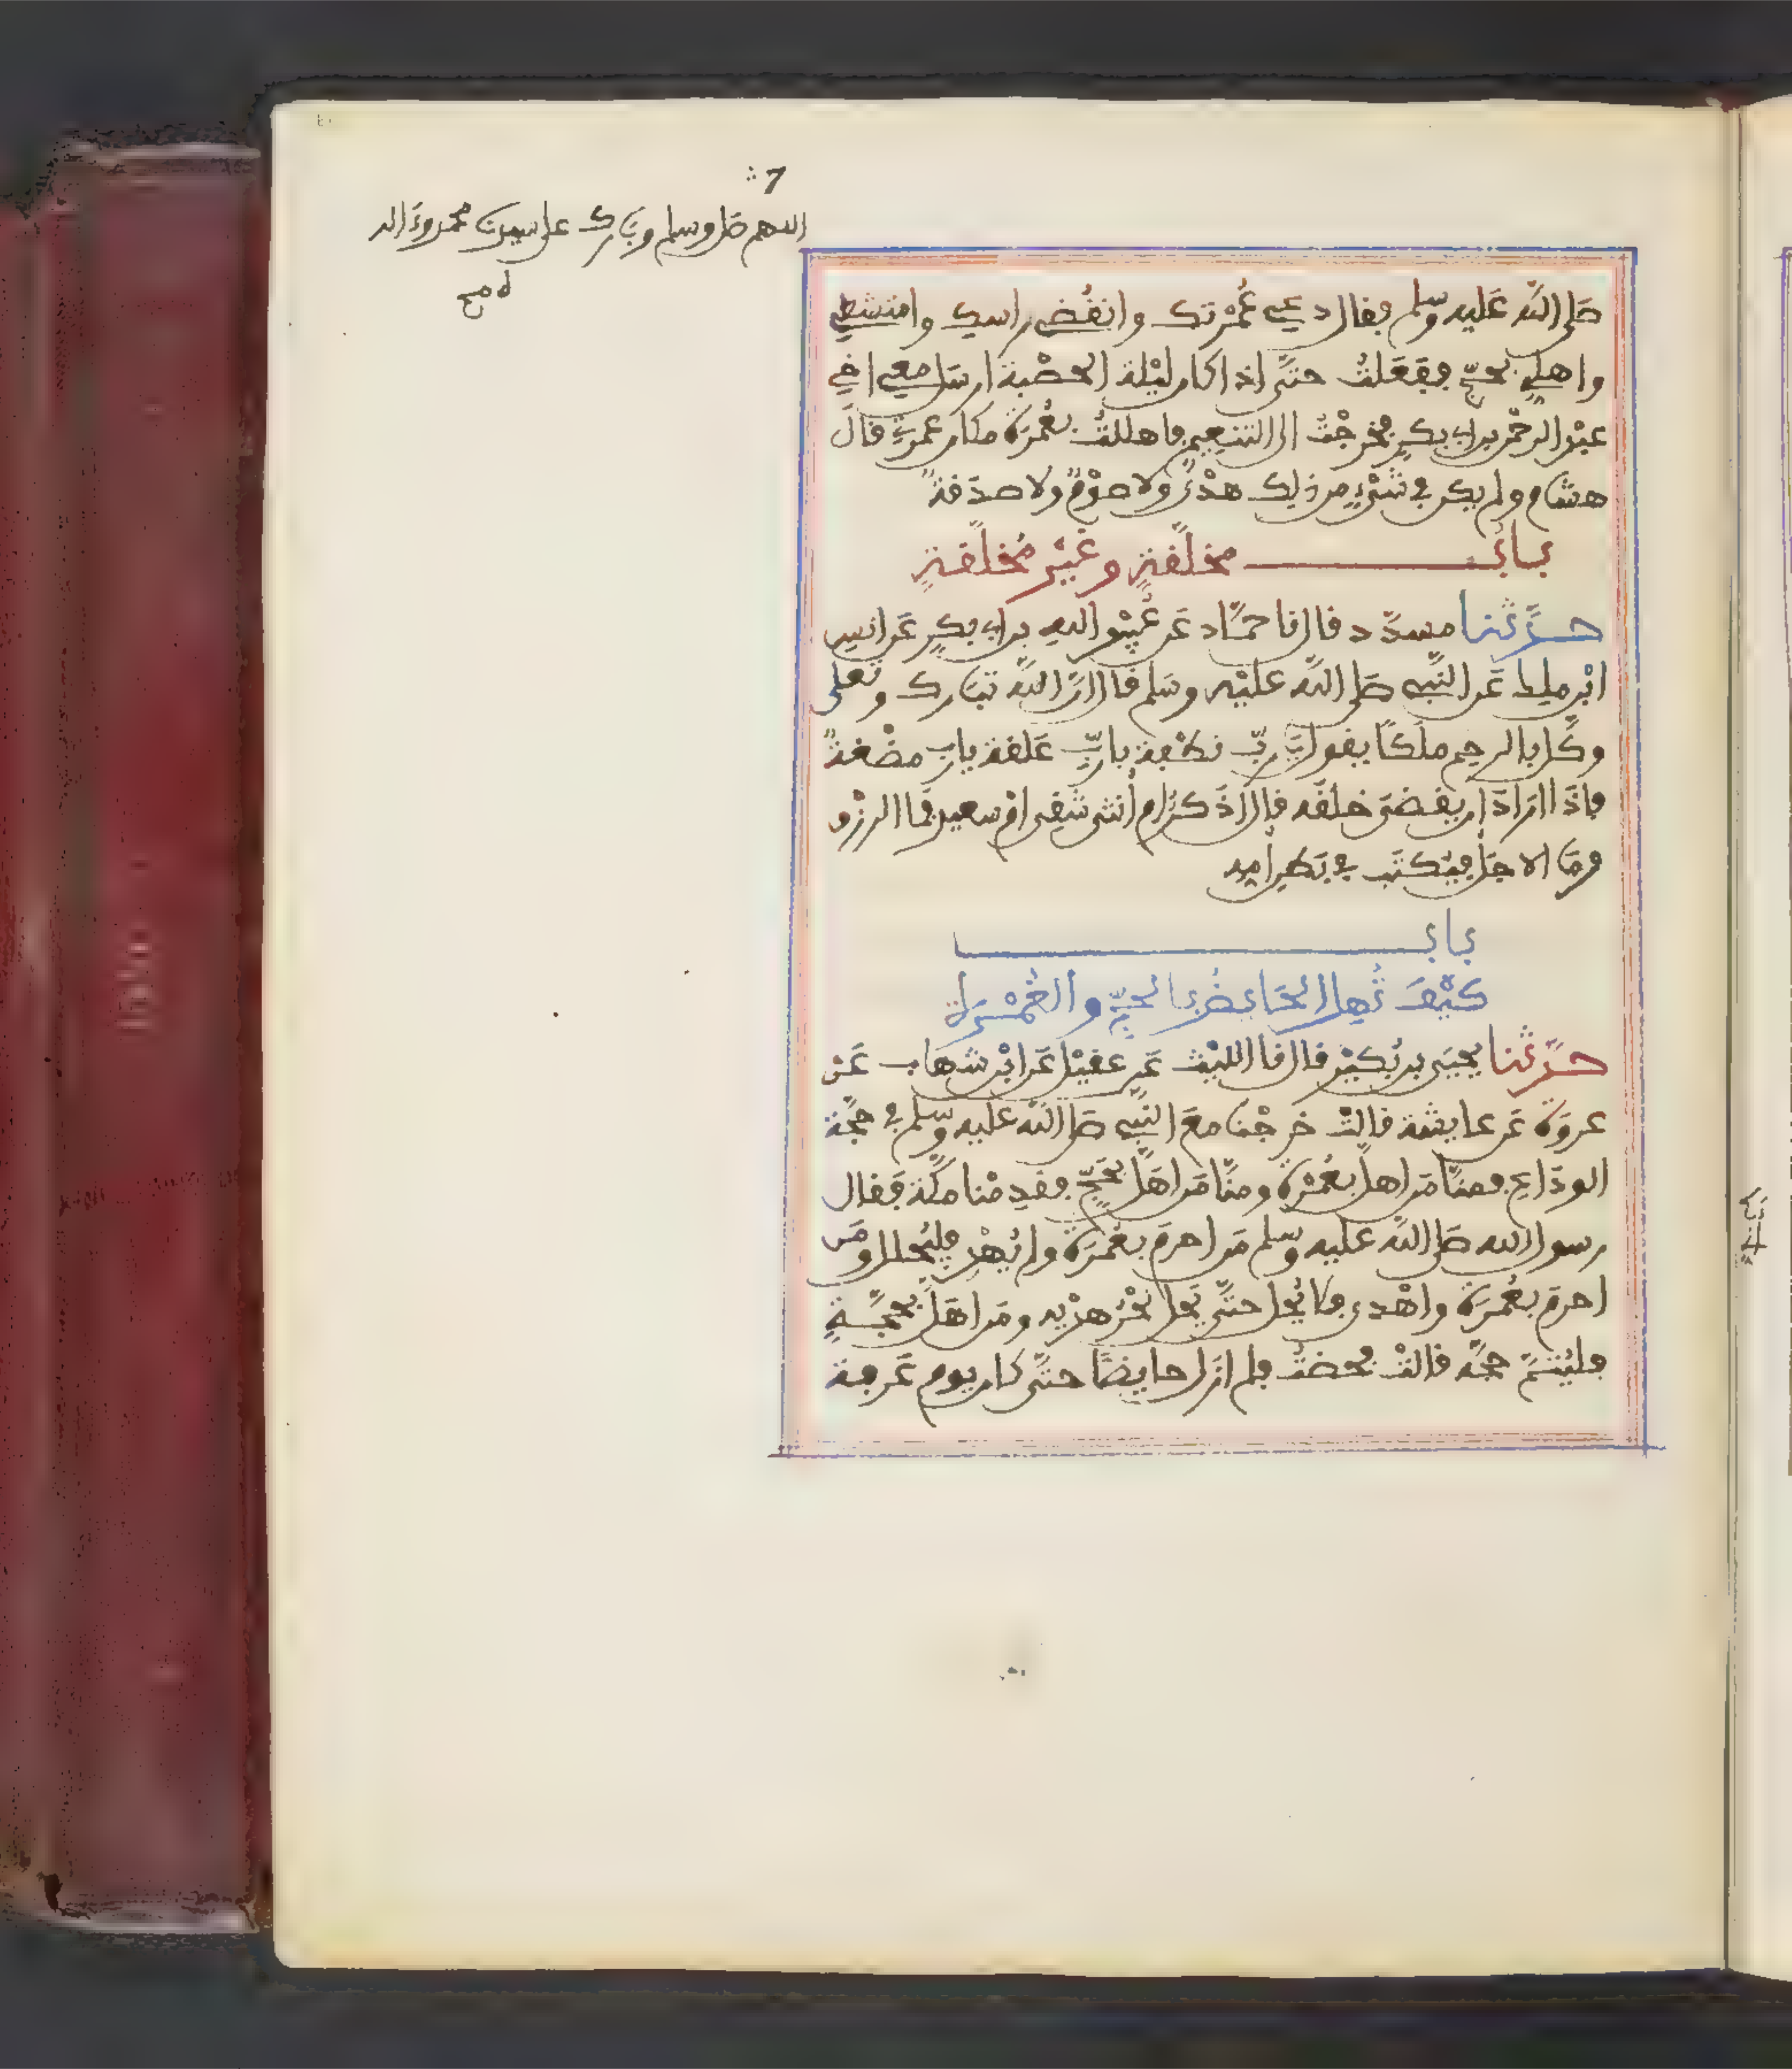 7
اللهم صل وسلم وبارك على سيدنا محمد وءاله
صلى الله عليه وسلم فقال دعي عُمْرتك وانقُضي راسك وامتشطي
واهلي بحجّ ففعَلتُ حتّى اذا كان ليْلة الحصْبة ارسَل معي اخي
عبْد الرحمن بن ابي بكرٍ فخرجْتُ الى التنعِيم فاهللتُ بعُمرَة مكان عمرتي قالَ
هشام ولم يكن في شيْءٍ من ذلك هدْيٌ ولا صوْمٌ ولا صدَقةٌ
باب مخلّقةٍ وغيْر مُخلّقةٍ
حدّثنا مسدّد قال نا حمّاد عَن عُبيْد اللهِ بن ابي بكرٍ عَن انسِ
ابْن ملك عَن النّبي صَلى اللهُ عليْه وسَلم قال انّ اللهَ تبَارك وتعلى
وكّل بالرحِم ملَكًا يقول يَا ربّ نطْفة يا ربِّ عَلقة يا ربّ مضْغةٌ
فاذَا ارَادَ ان يقضىَ خلقَه قال اذَكرٌ ام اُنثى شقي امْ سعيد فمَا الرزْق
ومَا الاجَل فيُكتَب في بَطن امه
باب
كيْفَ تُهل الحَايض بالحجِّ والعُمْرَة
حدّثنا يحيَى بن بُكيْر قال نا الليْث عَن عقيْل عَن ابْن شهَاب عَن
عروَة عَن عايشة قالت خرجْنا معَ النّبي صَلى الله عليه وسّلم في حجّة
الودَاع فمنّا مَن اهلّ بعُمْرة ومنّا مَن اهَلّ بحَجّ فقدِمْنا مكّة فقال
رسول الله صَلى الله عليه وسّلم مَن احرمَ بعُمرَة ولم يُهْدِ فليُحلل ومَن
احرمَ بعُمرَة واهْدى فلا يُحل حتّى يَحل نحْرُ هدْيه ومَن اهَلّ بحجّةٍ
فليُتمّ حجّه قالتْ فحضتُ فلم ازَل حايضًا حتّى كان يوم عَرفة